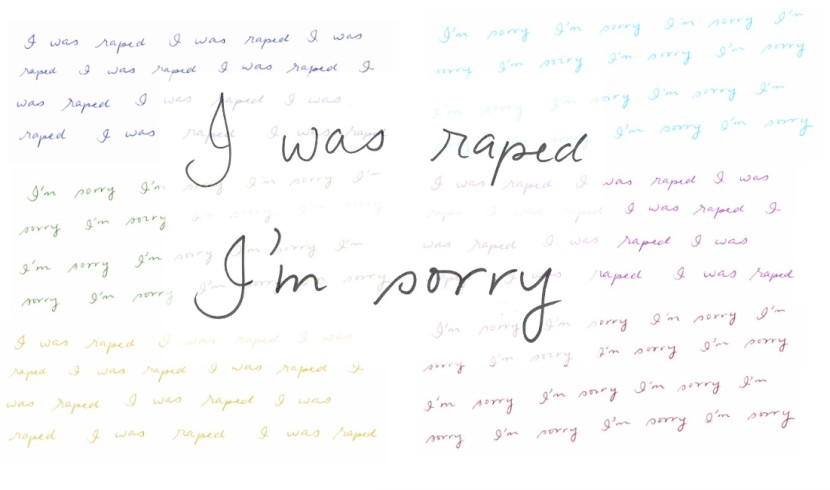 I was raped I was raped I was
raped I was raped I was raped I
was raped I was raped I was
raped I was raped I was raped
I'm sorry I'm sorry I'm sorry I'm
sorry I'm sorry I'm sorry I'm sorry
I'm sorry I'm sorry I'm sorry I'm
I'm sorry I'm sorry
I was raped
I'm sorry I'm sorry I'm sorry I'm
sorry I'm sorry I'm sorry I'm sorry
I'm sorry I'm sorry I'm sorry I'm
sorry I'm sorry I'm sorry I'm sorry
I was raped I was raped I was
raped I was raped I was raped I
was raped I was raped I was
raped I was raped
I'm sorry
I was raped I was raped I was
raped I was raped I was raped I
was raped I was raped I was
raped I was raped I was raped
I'm sorry I'm sorry I'm sorry I'm
sorry I'm sorry I'm sorry I'm sorry
I'm sorry I'm sorry I'm sorry I'm
sorry I'm sorry I'm sorry I'm sorry